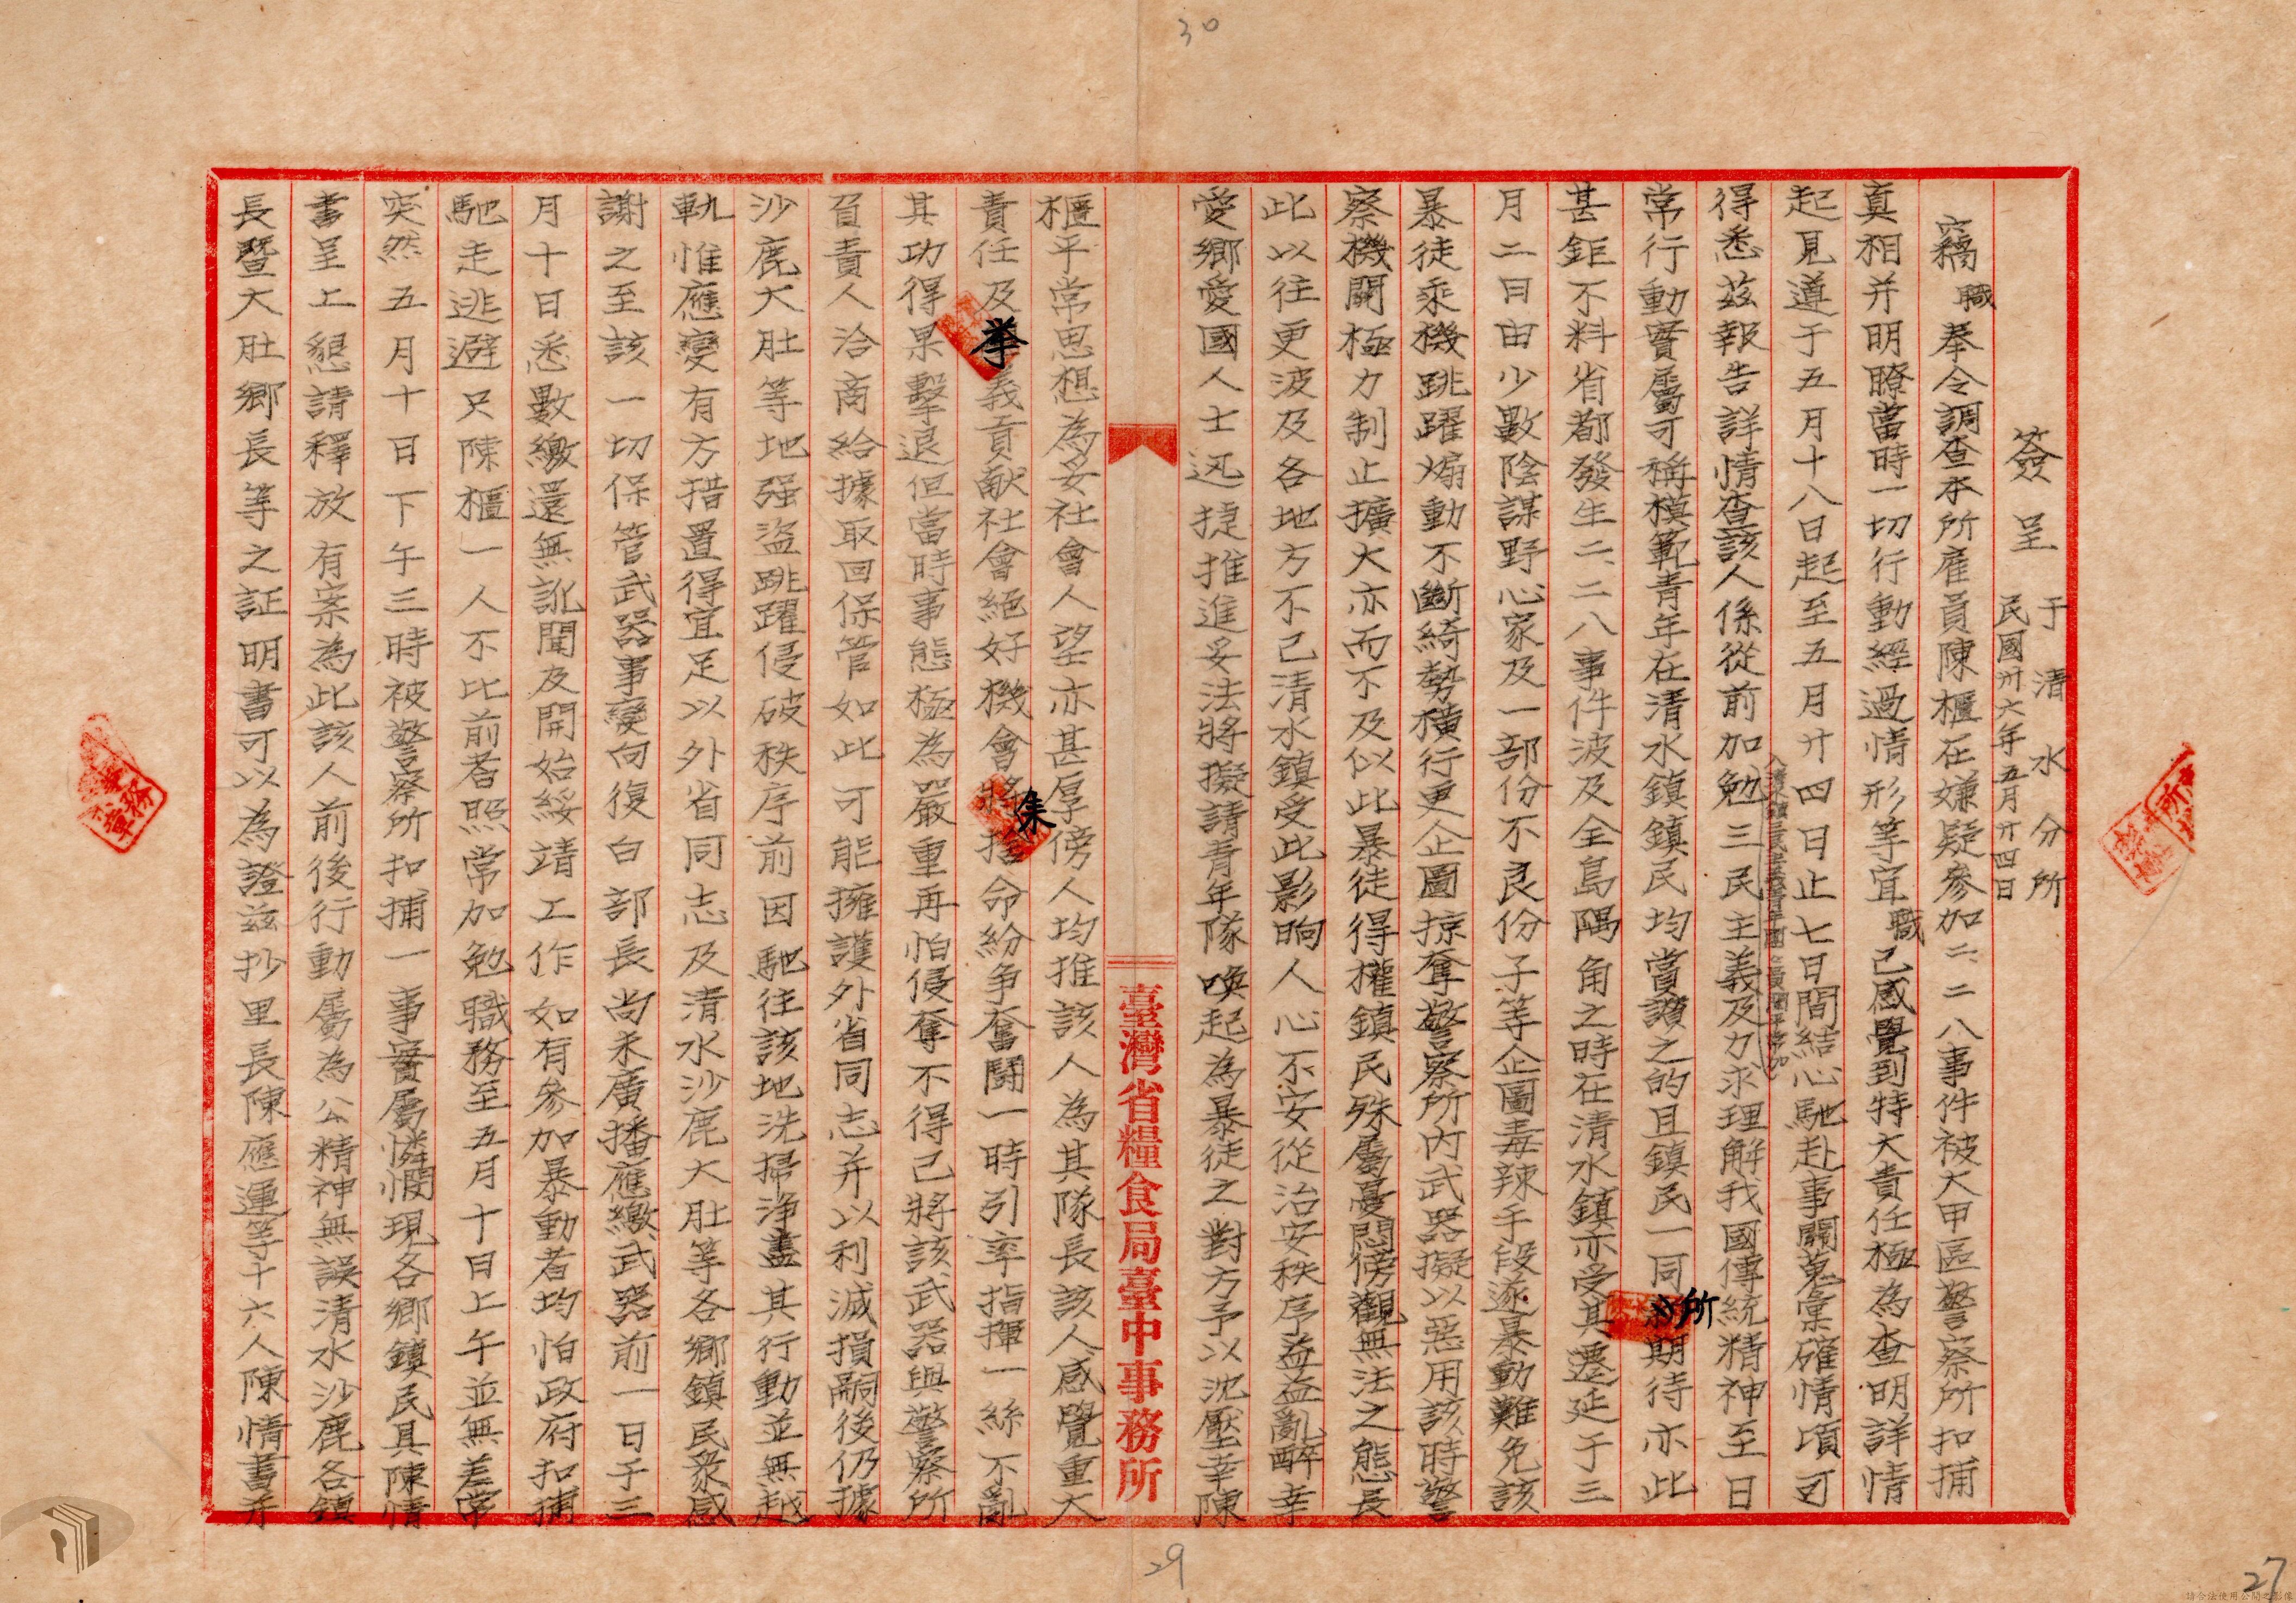 30
簽呈 于清水分所
民國卅六年五月廿四日
竊職奉令調查本所雇員陳櫃在嫌疑參加二、二八事件被大甲區警察所扣捕
真相并明瞭當時一切行動經過情形等宜職己感覺到特大責任極為查明詳情
起見遵于五月十八日起至五月廿四日止七日間結心馳赴事關蒐彙確情項可
得悉茲報告詳情查該人係從前加勉三民主義及力求理解我國傳統精神至日
常行動實屬可稱模範青年在清水鎮鎮民均賞讚之的且鎮民一同所期待亦此
甚鉅不料省都發生二、二八事件波及全島隅角之時在清水鎮亦受其遷延于三
月二日由少數陰謀野心家及一部份不良份子等企圖毒辣手段遂暴動難免該
暴徒乘機跳躍煽動不斷綺勢橫行更企圖掠奪警察所內武器擬以惡用該時警
察機關極力制止擴大亦而不及似此暴徒得權鎮民殊屬憂悶傍觀無法之態長
此以往更波及各地方不己清水鎮受此影响人心不安從治安秩序益益亂醉幸
愛鄉愛國人士迅捷推進妥法將擬請青年隊喚起為暴徒之對方予以沈壓幸陳
臺灣省糧食局臺中事務所
櫃平常思想為妥社會人望亦甚厚傍人均推該人為其隊長該人感覺重大
責任及舉義貢献社會絕好機會將集捨命紛争奮鬪一時引率指揮一絲不亂
其功得果擊退但當時事態極為嚴重再怕侵奪不得己將該武器與警察所
負責人洽商給據取回保管如此可能擁護外省同志并以利減損嗣後仍據
沙鹿大肚等地强盜跳躍侵破秩序前因馳往該地洗掃净盡其行動並無越
軌惟應變有方措置得宜足以外省同志及清水沙鹿大肚等各鄉鎮民衆感
謝之至該一切保管武器事變向復白部長尚未廣播應繳武器前一日于三
月十日悉數繳還無訛聞及開始綏靖工作如有參加暴動者均怕政府扣捕
馳走逃避只陳櫃一人不比前者照常加勉職務至五月十日上午並無差常
突然五月十日下午三時被警察所扣捕一事實屬憐憫現各鄉鎮民具陳情
書呈上懇請釋放有案為此該人前後行動屬為公精神無誤清水沙鹿各鎮
長暨大肚鄉長等之証明書可以為證茲抄里長陳應運等十六人陳情書并
29
27
請合法使用公開之影像